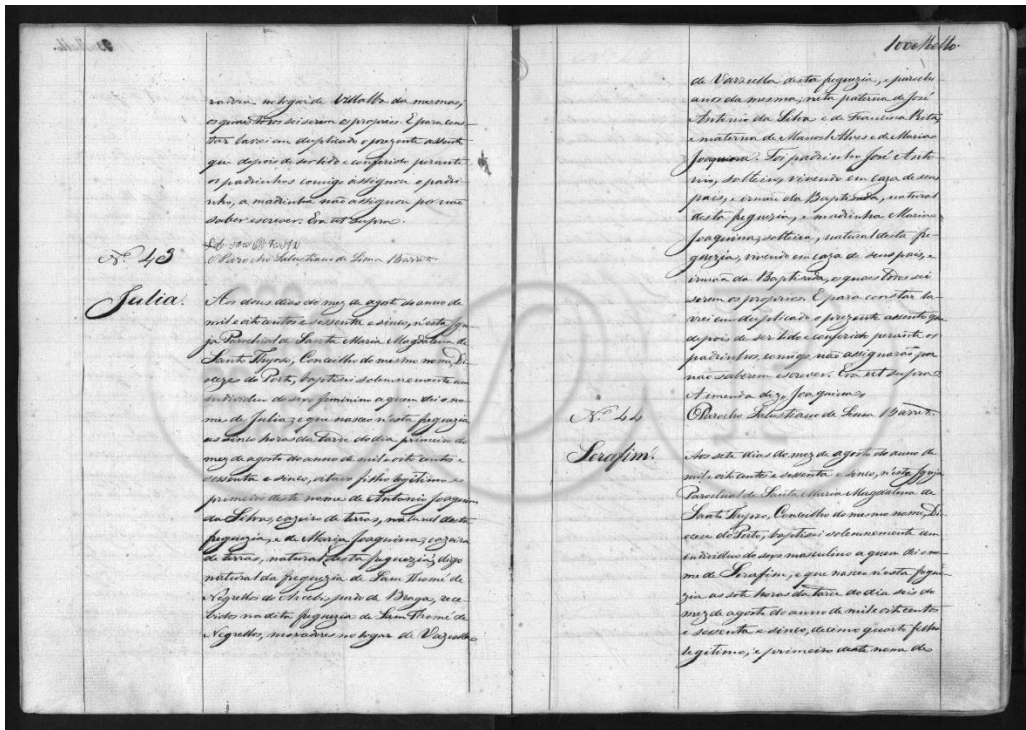 radora no logar de Villalba da mesma,
os quaes todos sei serem os proprios. E para cons-
tar lavrei em duplicado o prezente assento
que depois de ser lido e conferido perante
os padrinhos comigo assignou o padri-
nho, a madrinha não assignou por não
saber escrever. Era ut supra.
O Parocho Salustiano de Lima Barreto
N.º 43
Julia.
Aos dous dias do mez de agosto do anno de
mil e oito centos e sessenta e sinco, n'esta Igre-
ja Parochial de Santa Maria Magdalena de
Santo Thyrso, Concelho do mesmo nome, Di-
oceze do Porto, baptisei solemnemente um
individuo do sexo feminino a quem dei o no-
me de Julia, e que nasceo n'esta freguezia
as sinco horas da tarde do dia primeiro do
mez de agosto do anno de mil e oito centos e
sessenta e sinco, oitavo filho legitimo e
primeiro deste nome de Antonio Joaquim
da Silva, cazeiro de terras, natural desta
freguezia, e de Maria Joaquina, cazeira
de terras, natural desta freguezia, digo
natural da freguezia de Sam Thomé de
Negrellos do Arcebispado de Braga, rece-
bidos na dita freguezia de Sam Thomé de
Negrellos, moradores no logar de
100 Mello.
de Varziella desta freguezia, e parochi-
anos da mesma, neta paterna de José
Antonio da Silva e de Francisca Rita,
e materna de Manoel Alves e de Maria
Joaquina. Foi padrinho José Anto-
nio, solteiro, vivendo em caza de seus
pais, e irmão da Baptisada, natural
desta freguezia, e madrinha Maria
Joaquina, solteira, natural desta fre-
guezia, vivendo em caza de seus pais, e
irmãa da Baptisada, os quaes todos sei
serem os proprios. E para constar la-
vrei em duplicado o prezente assento que
depois de ser lido e conferido perante os
padrinhos, comigo não assignarão por
não saberem escrever. Era ut supra.
A emenda diz = Joaquina =
O Parocho Salustiano de Lima Barreto
N.º 44
Serafim.
Aos sete dias do mez de agosto do anno de
mil e oito centos e sessenta e sinco, n'esta Igreja
Parochial de Santa Maria Magdalena de
Santo Thyrso, Concelho do mesmo nome, Di-
oceze do Porto, baptisei solemnemente um
individuo do sexo masculino a quem dei o no-
me de Serafim, e que nasceo n'esta fregue-
zia as sete horas da tarde do dia seis do
mez de agosto do anno de mil e oito centos
e sessenta e sinco, decimo quarto filho
legitimo, e primeiro deste nome de